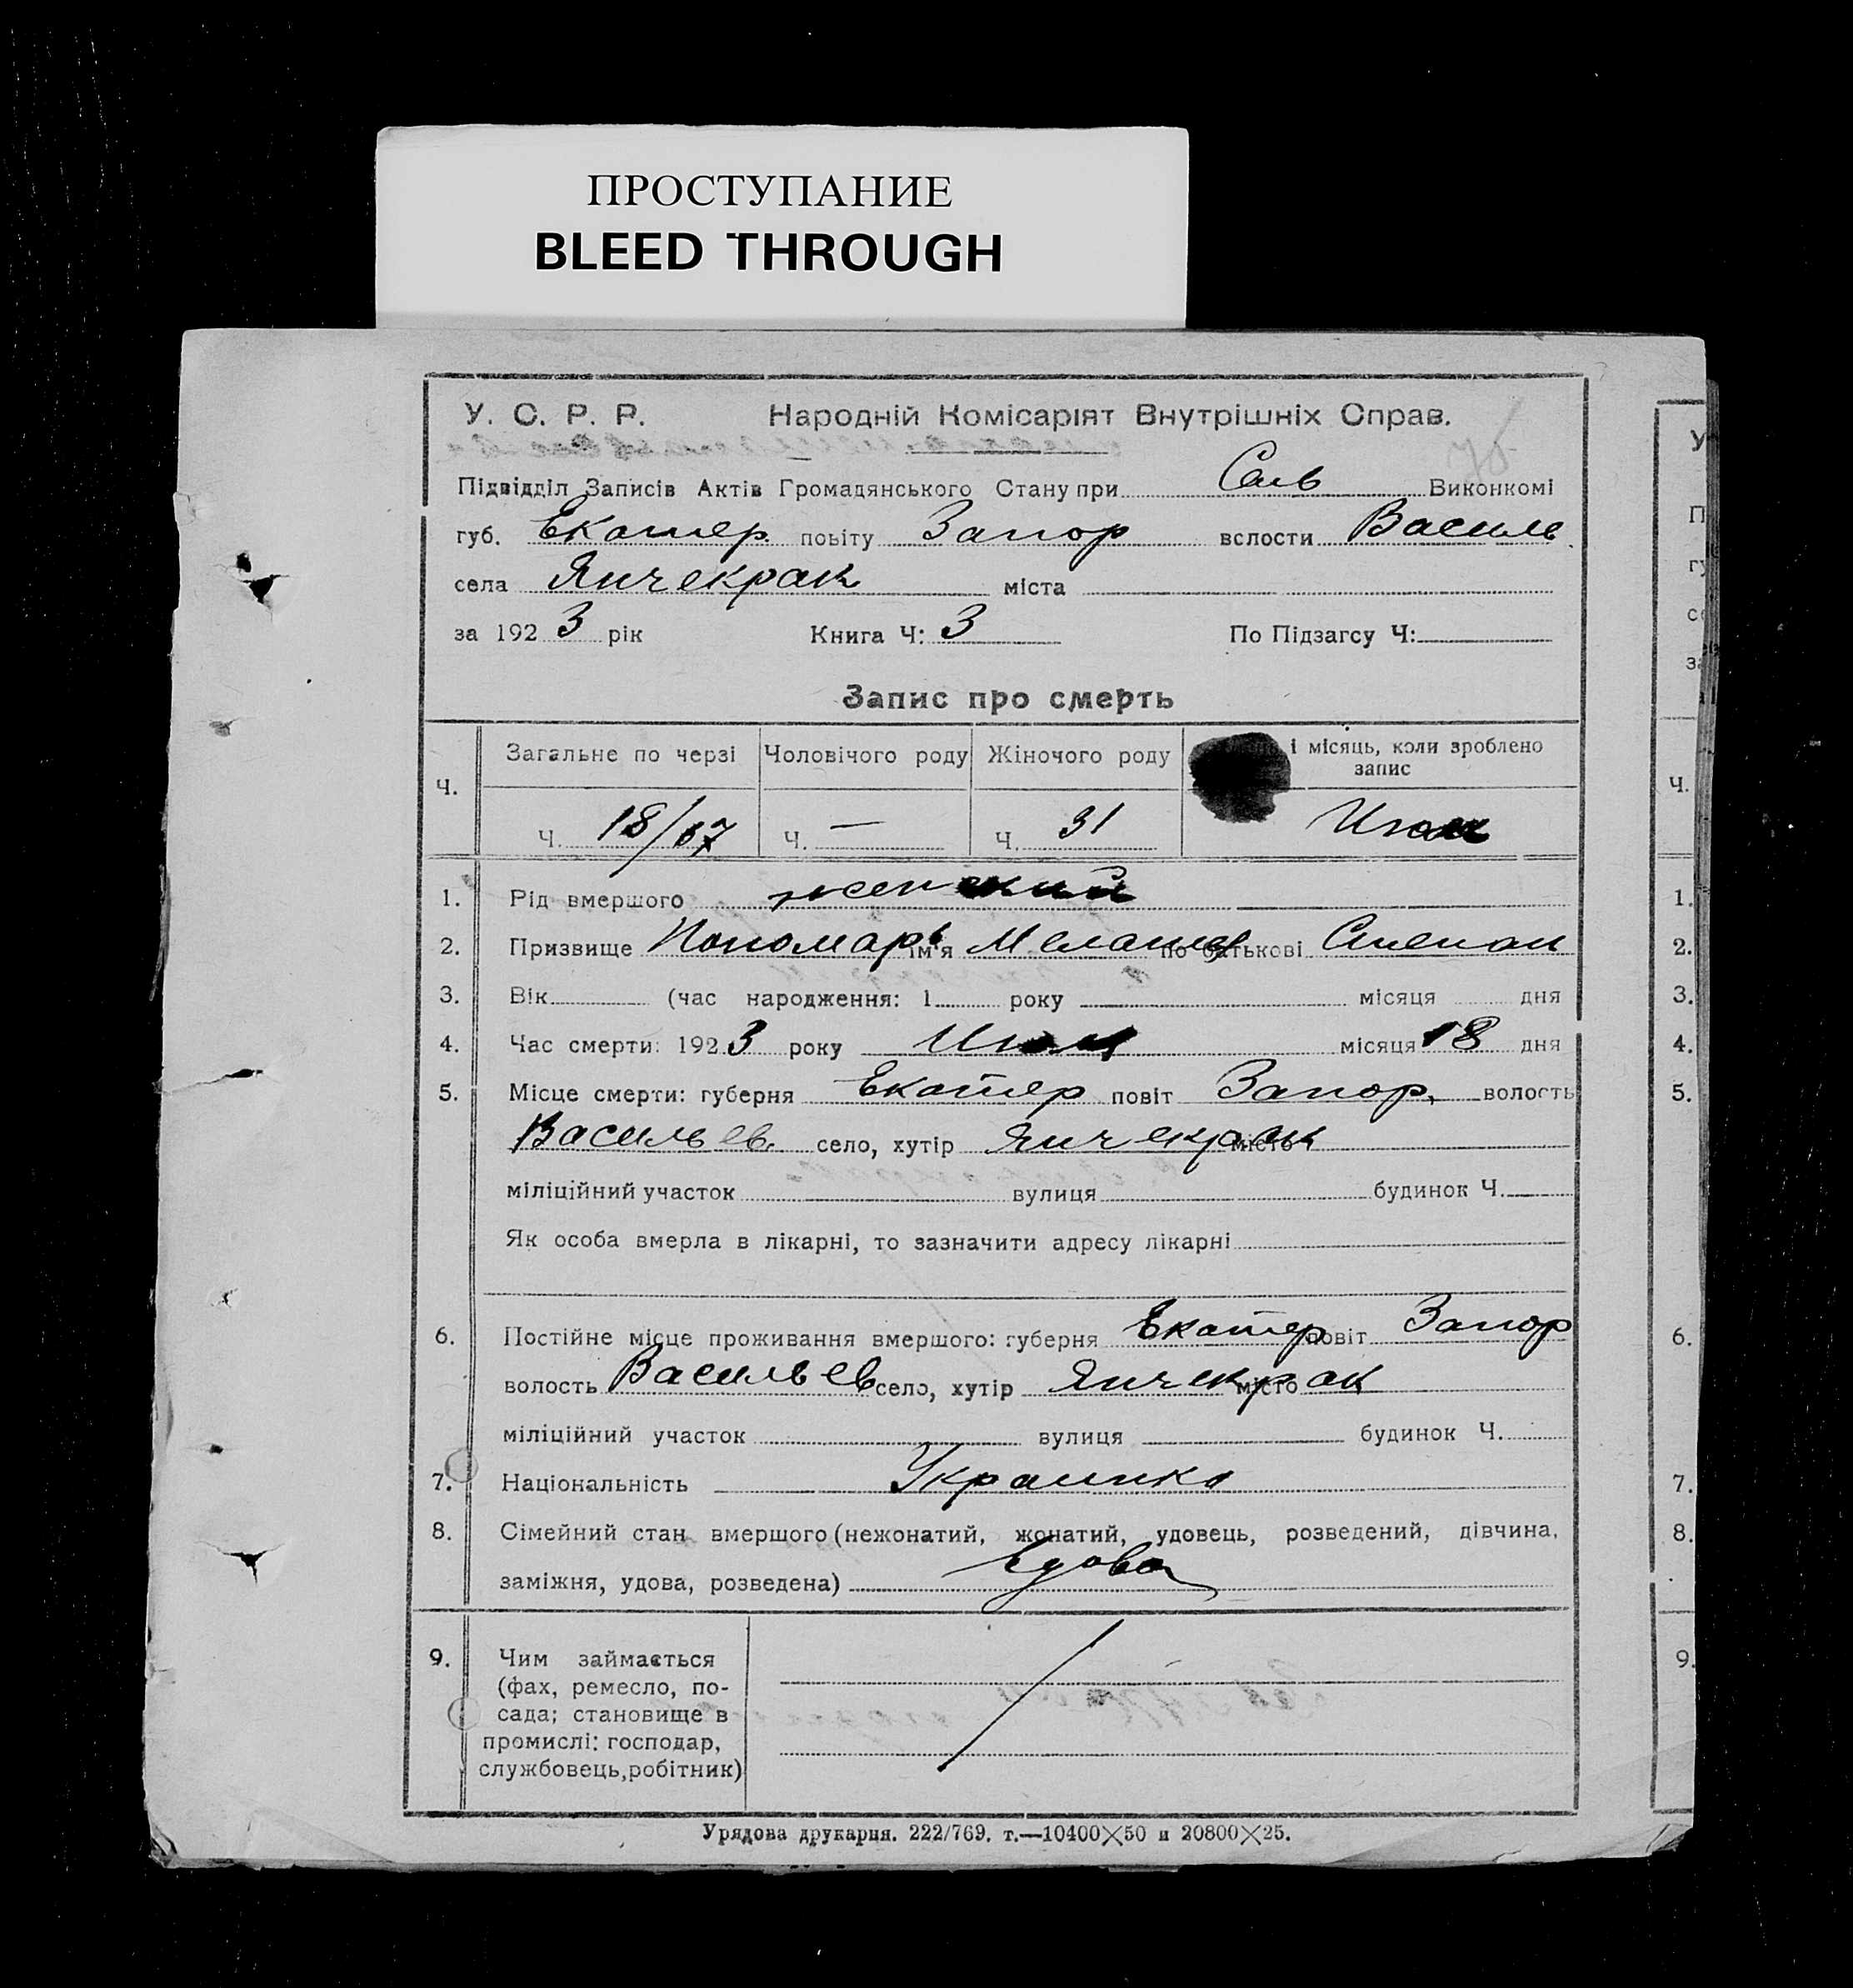 ПРОСТУПАНИЕ
BLEED THROUGH
У. С. Р. Р. Народній Комісаріят Внутрішніх Справ.
Підвідділ Записів Актів Громадянського Стану при Сель Виконкомі
губ. Екатер. повіту Запор вслости Василь
села Янчекрак міста
за 1923 рік Книга Ч: 3 По Підзагсу Ч:
Запис про смерть
Ч. Загальне по черзі Чоловічого роду Жіночого роду і місяць, коли зроблено
запис
Ч. 18/67 Ч. — Ч. 31
1. Рід вмершого женский
2. Призвище Пономарь ім'я по батькові Степан
3. Вік (час народження: 1 року місяця дня
4. Час смерти: 1923 року місяця 18 дня
5. Місце смерти: губерня Екатер повіт Запор. волость
Васильев. село, хутір Янчекрак місто
міліційний участок вулиця будинок Ч.
Як особа вмерла в лікарні, то зазначити адресу лікарні
6. Постійне місце проживання вмершого: губерня Екатер повіт Запор
волость Васильев село, хутір Янчекрак місто
міліційний участок вулиця будинок Ч.
7. Національність Украинка
8. Сімейний стан вмершого (нежонатий, жонатий, удовець, розведений, дівчина,
заміжня, удова, розведена) Вдова
9. Чим займається
(фах, ремесло, по-
сада; становище в
промислі: господар,
службовець, робітник)
Урядова друкарня. 222/769. т.—10400×50 и 20800×25.
У
П
гу
се
за
Ч.
1.
2.
3.
4.
5.
6.
7.
8.
9.